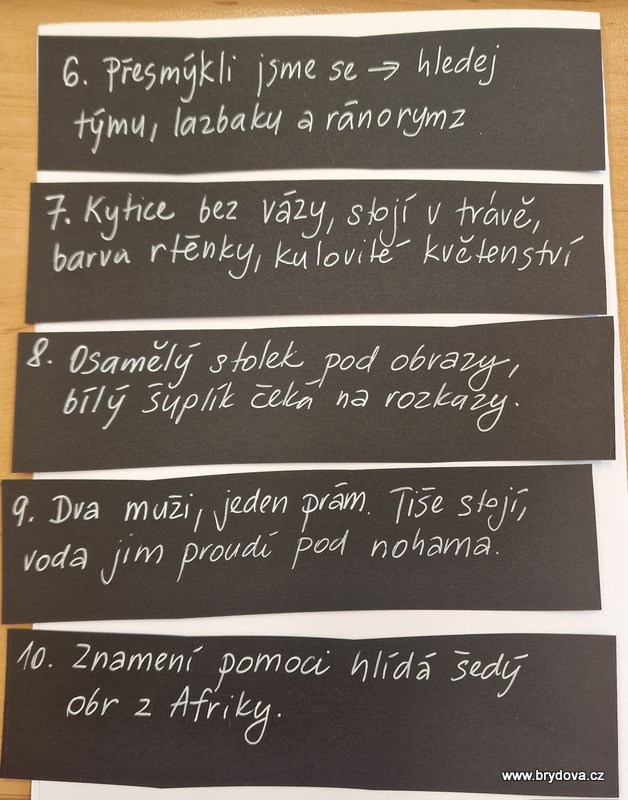 6. Přesmýkli jsme se → hledej
týmu, lazbaku a ránorymz
7. Kytice bez vázy, stojí v trávě,
barva rtěnky, kulovité květenství
8. Osamělý stolek pod obrazy,
bílý šuplík čeká na rozkazy.
9. Dva muži, jeden prám. Tiše stojí,
voda jim proudí pod nohama.
10. Znamení pomoci hlídá šedý
obr z Afriky.
www.brydova.cz